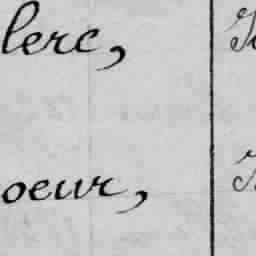 lerc,
oeur,